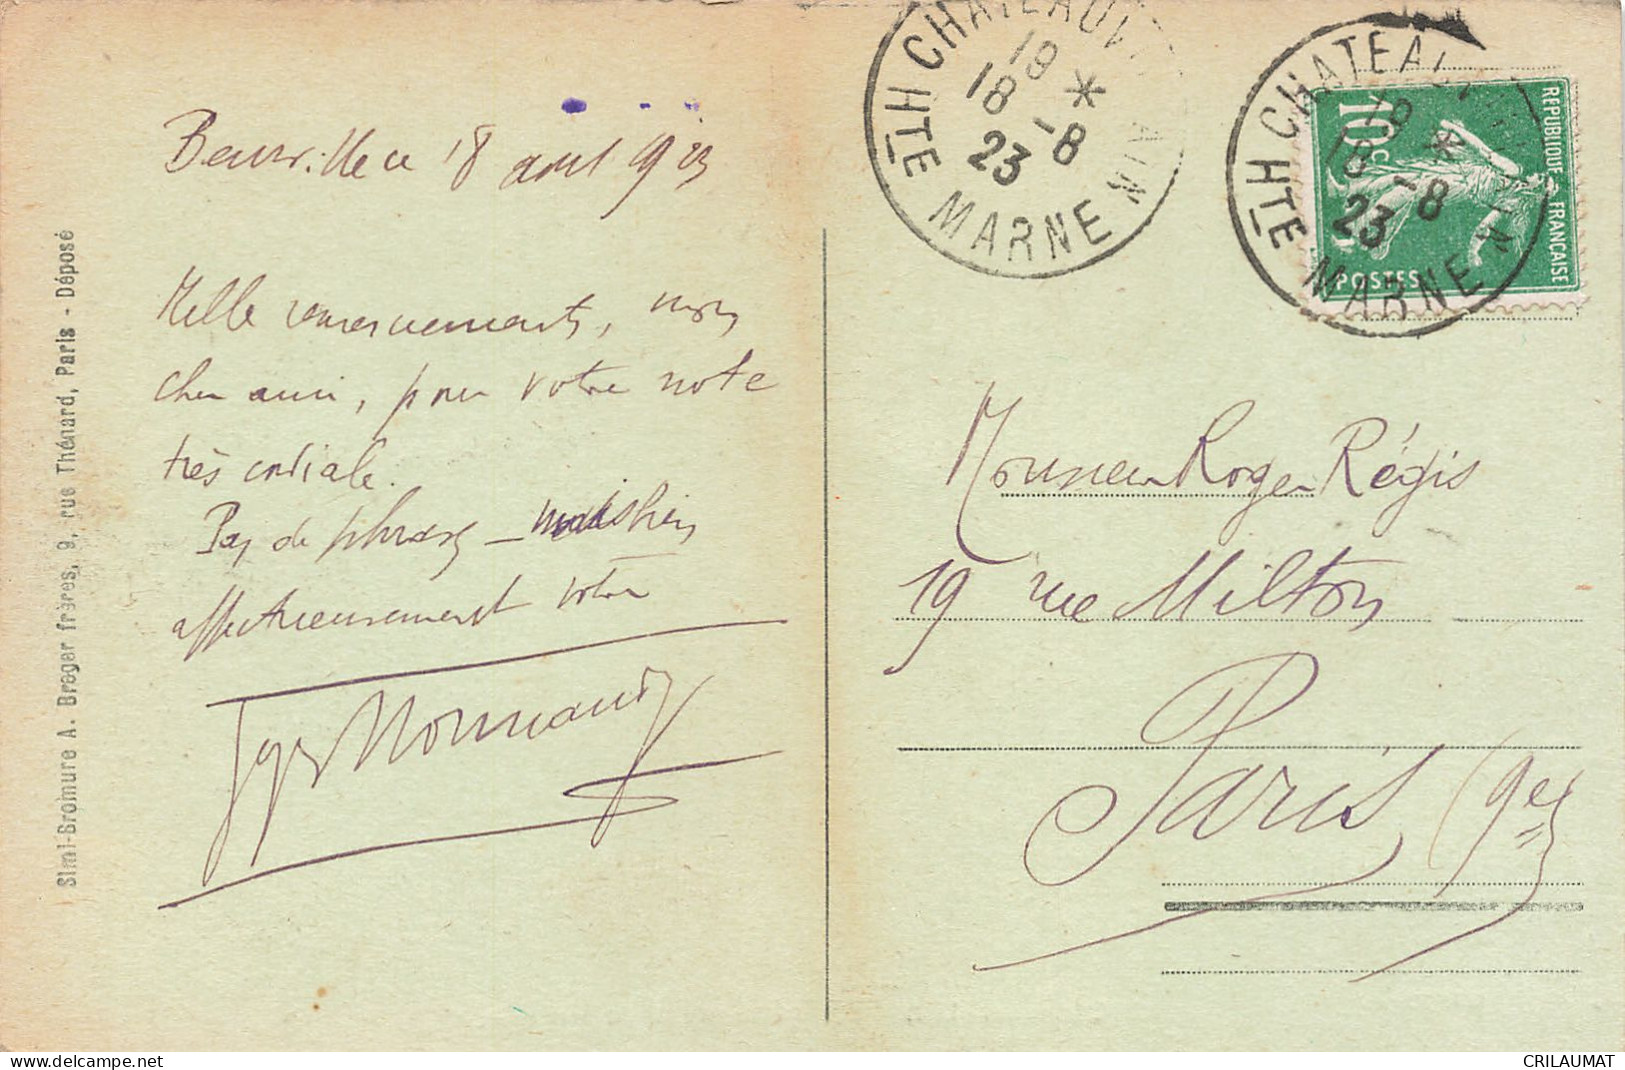 Beurville ce 18 août 923
Mille remerciements, mon
cher ami, pour votre note
très cordiale.
Pas de phrases – mais bien
affectueusement votre
Normand
Simi-Bromure A. Breger frères, 9, rue Thénard, Paris - Déposé
CHATEAUVILLAIN
19 *
18 -8
23
HTE MARNE
CHATEAUVILLAIN
19 *
18 -8
23
HTE MARNE
REPUBLIQUE FRANÇAISE
10c
POSTES
Monsieur Roger Régis
19 rue Milton
Paris (9e)
delcampe.net
CRILAUMAT